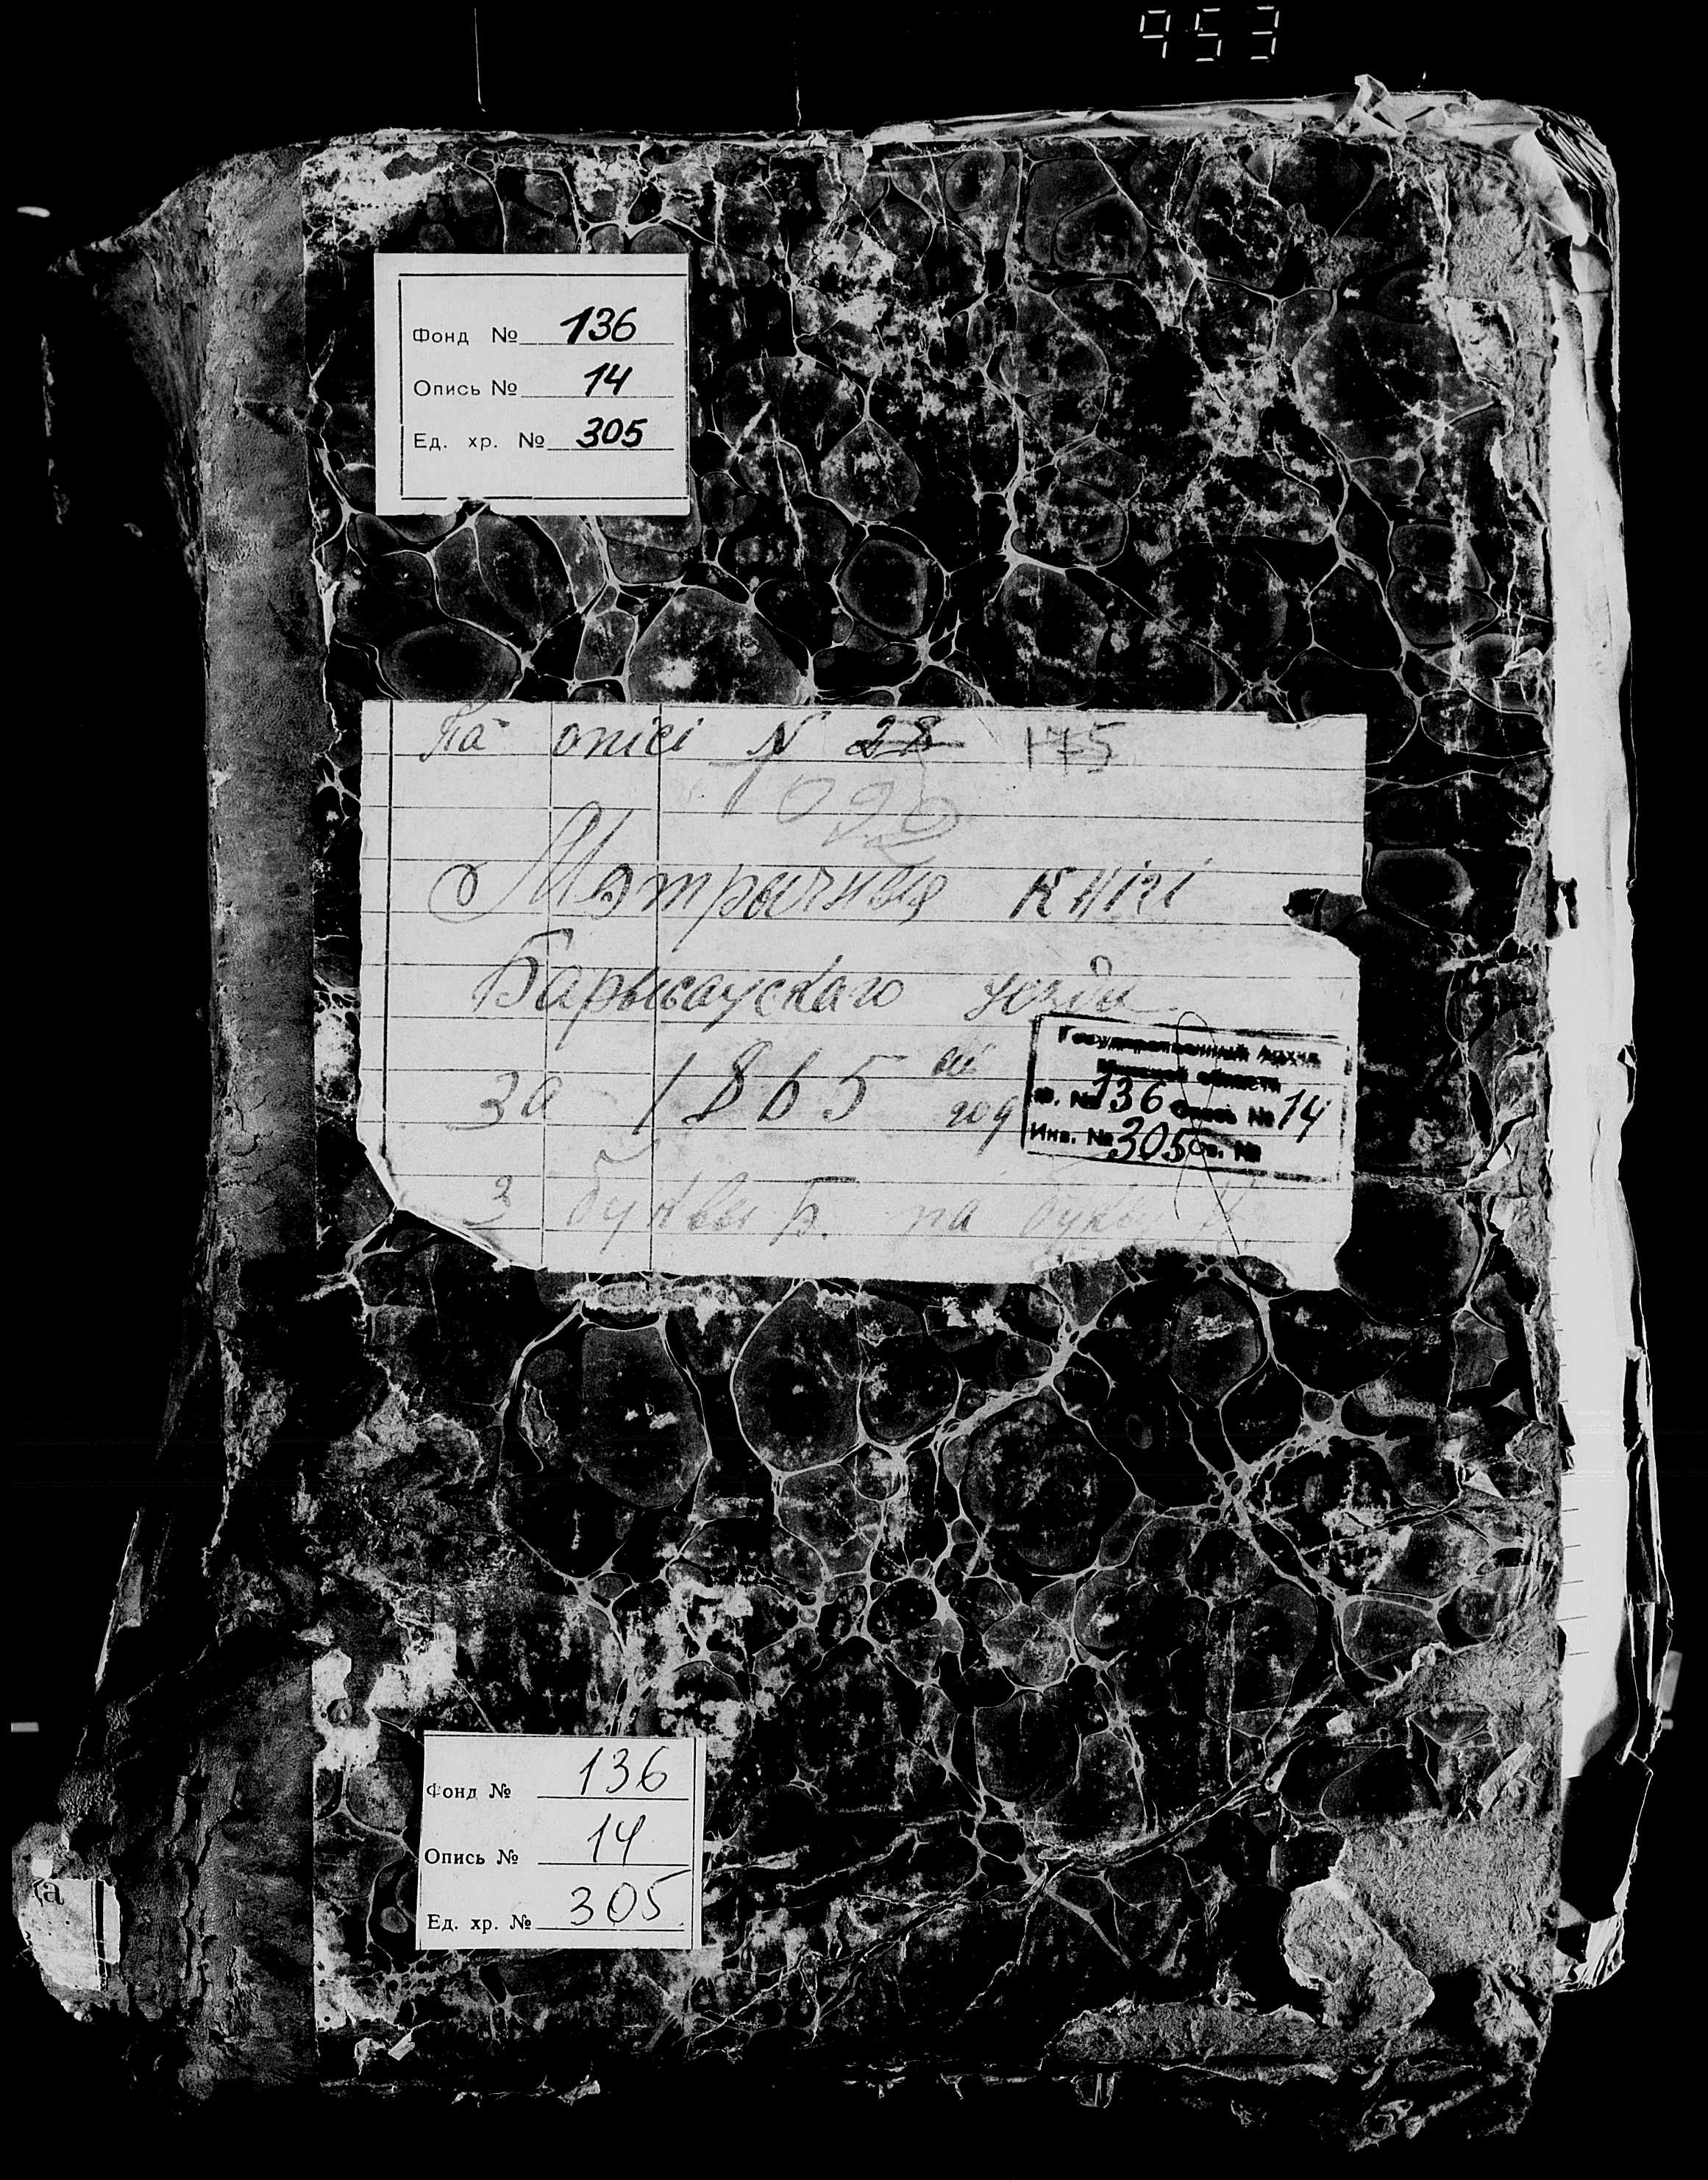 953
Фонд № 136
Опись № 14
Ед. хр. № 305
Па опісі N 28 175
1092
Мэтрычныя кнігі
Барысаускаго уезда
За 1865 ый год
Государственный Архив
Минской области
Ф. № 136 Опись № 14
Инв. № 305 Св. №
З буквы Б. па букву
Фонд № 136
Опись № 14
Ед. хр. № 305
ка